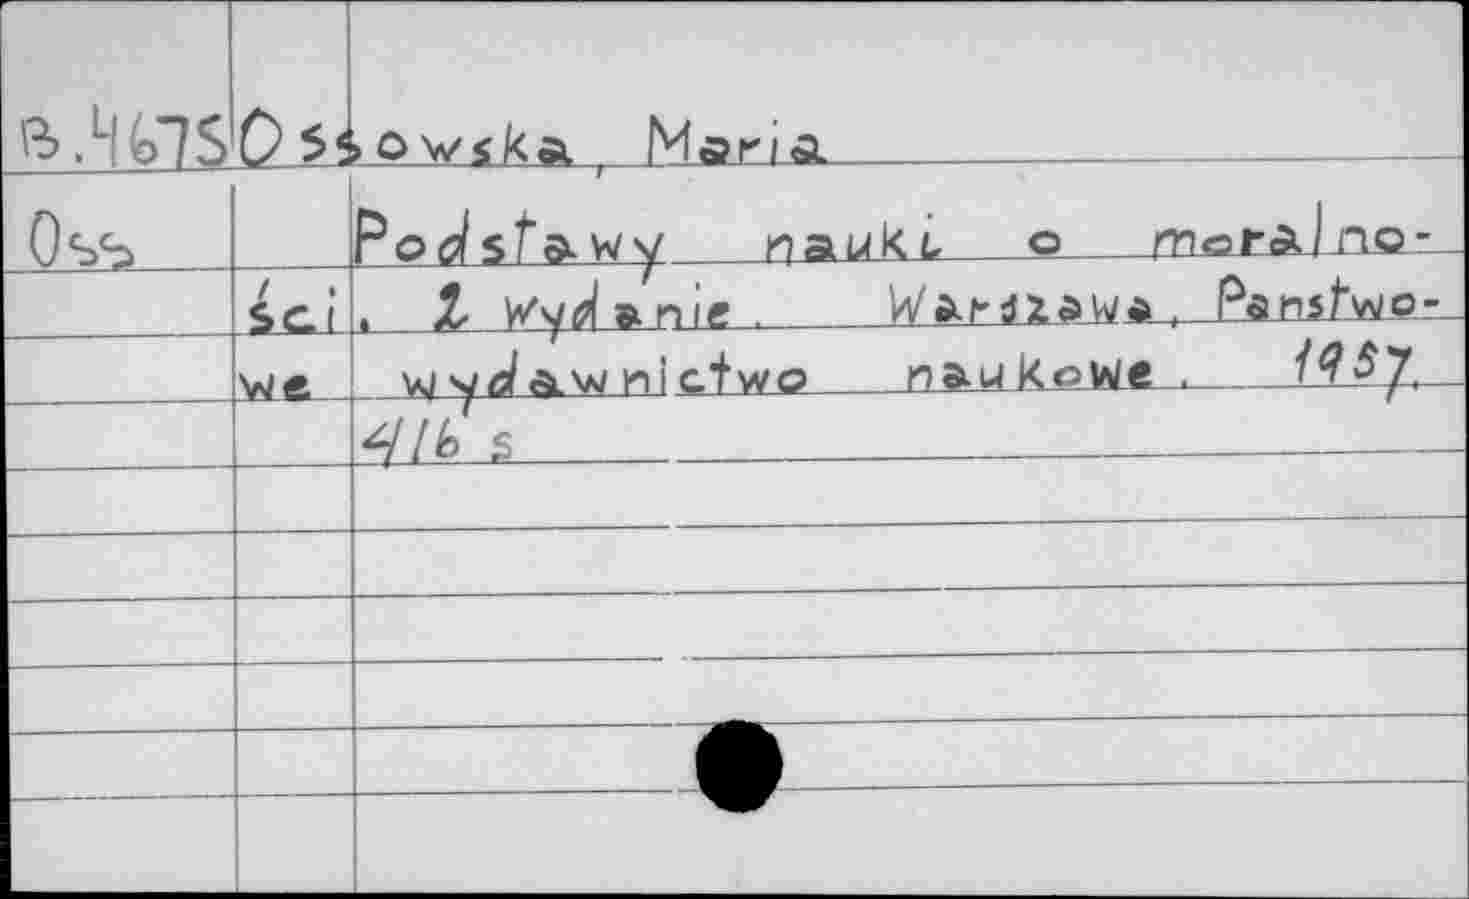 B.4675 Ossowska, Maria
Oss Podstawy nauki o moralno-
ści. 2 Wydanie. Warszawa, Panstwo-
we wydawnictwo naukowe. 1957.
416 s